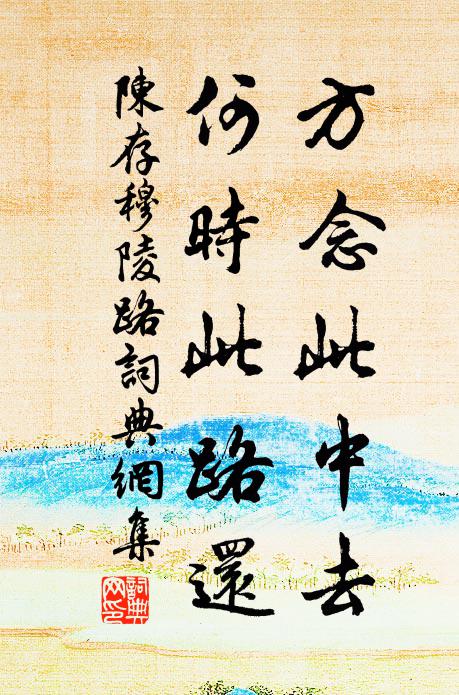 方念此中去
何時此路還
陳存穆陵路詞典網集
詞典網印